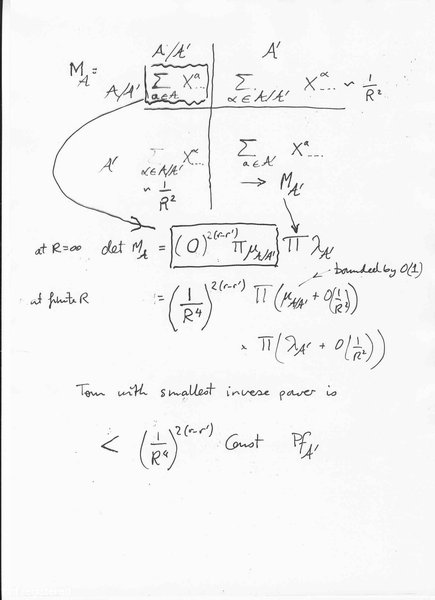 A/A' A'
M_A = A/A' ∑_{a∈A} X^a_{...} ∑_{α∈A/A'} X^α_{...} ~ 1/R²
A' ∑_{α∈A/A'} X^α_{...} ~ 1/R² ∑_{a∈A'} X^a_{...}
→ M_{A'}
at R=∞ det M_A = (0)^{2(r-r')} Π μ_{A/A'} Π λ_{A'}
bounded by O(1)
at finite R = (1/R⁴)^{2(r-r')} Π(μ_{A/A'} + O(1/R²))
× Π(λ_{A'} + O(1/R²))
Term with smallest inverse power is
< (1/R⁴)^{2(r-r')} Const Pf_{A'}